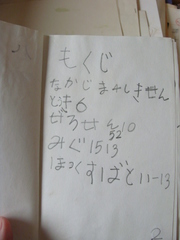 もくじ
なかじま4しきせん
どき6
せろせん10
52
みぐ1513
ほっくすばと11-13
2